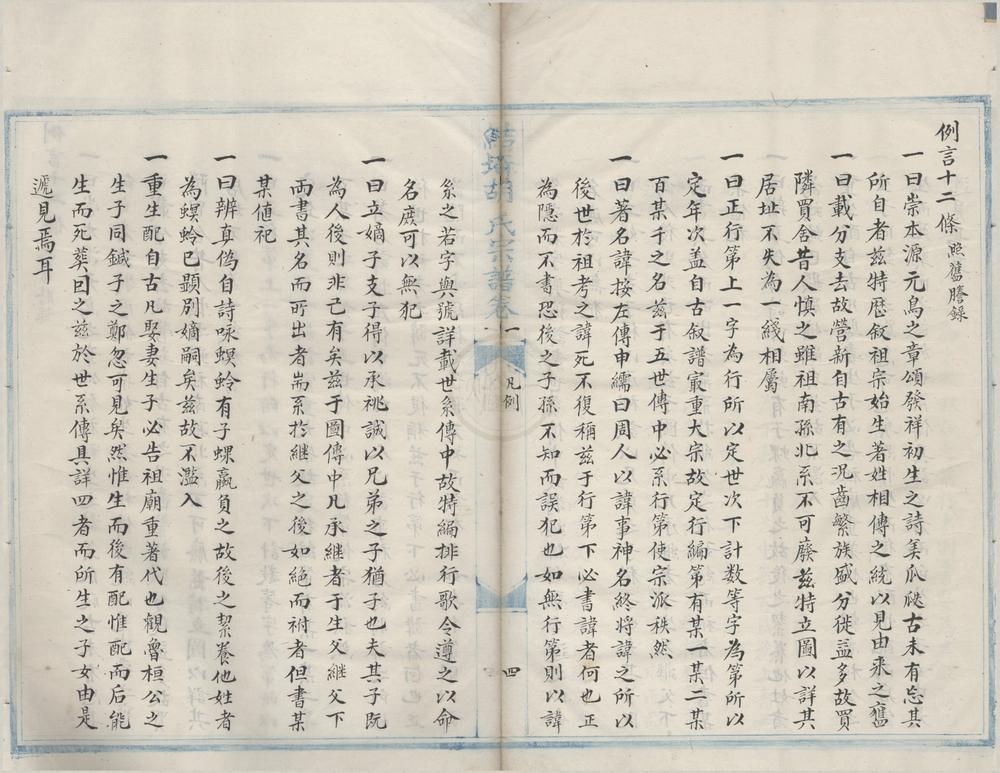 例言十二條 照舊謄錄
一曰崇本源元鳥之章頌發祥初生之詩美瓜瓞古未有忘其
所自者茲特歷叙祖宗始生著姓相傳之統以見由来之舊
一曰載分支去故營新自古有之况齒繁族盛分徙益多故買
隣買舍昔人慎之雖祖南孫北系不可廢茲特立圖以詳其
居址不失為一綫相屬
一曰正行第上一字為行所以定世次下計數等字為第所以
定年次盖自古叙譜冣重大宗故定行編第有某一某二某
百某千之名茲于五世傳中必系行第使宗派秩然
一曰著名諱按左傳申繻曰周人以諱事神名終將諱之所以
後世於祖考之諱死不復稱茲于行第下必書諱者何也正
為隱而不書恐後之子孫不知而誤犯也如無行第則以諱
系之若字與號詳載世系傳中故特編排行歌令遵之以命
名庻可以無犯
一曰立嫡子支子得以承祧誠以兄弟之子猶子也夫其子既
為人後則非己有矣茲于圖傳中凡承継者于生父継父下
両書其名而所出者耑系於継父之後如絶而祔者但書某
某値祀
一曰辨真偽自詩咏螟蛉有子蜾蠃負之故後之挈養他姓者
為螟蛉已顯別嫡嗣矣茲故不濫入
一重生配自古凡娶妻生子必告祖廟重著代也觀魯桓公之
生子同鍼子之鄭忽可見矣然惟生而後有配惟配而后能
生而死葬因之茲於世系傳具詳四者而所生之子女由是
遞見焉耳
鮚埼胡氏宗譜卷一
凡例
四